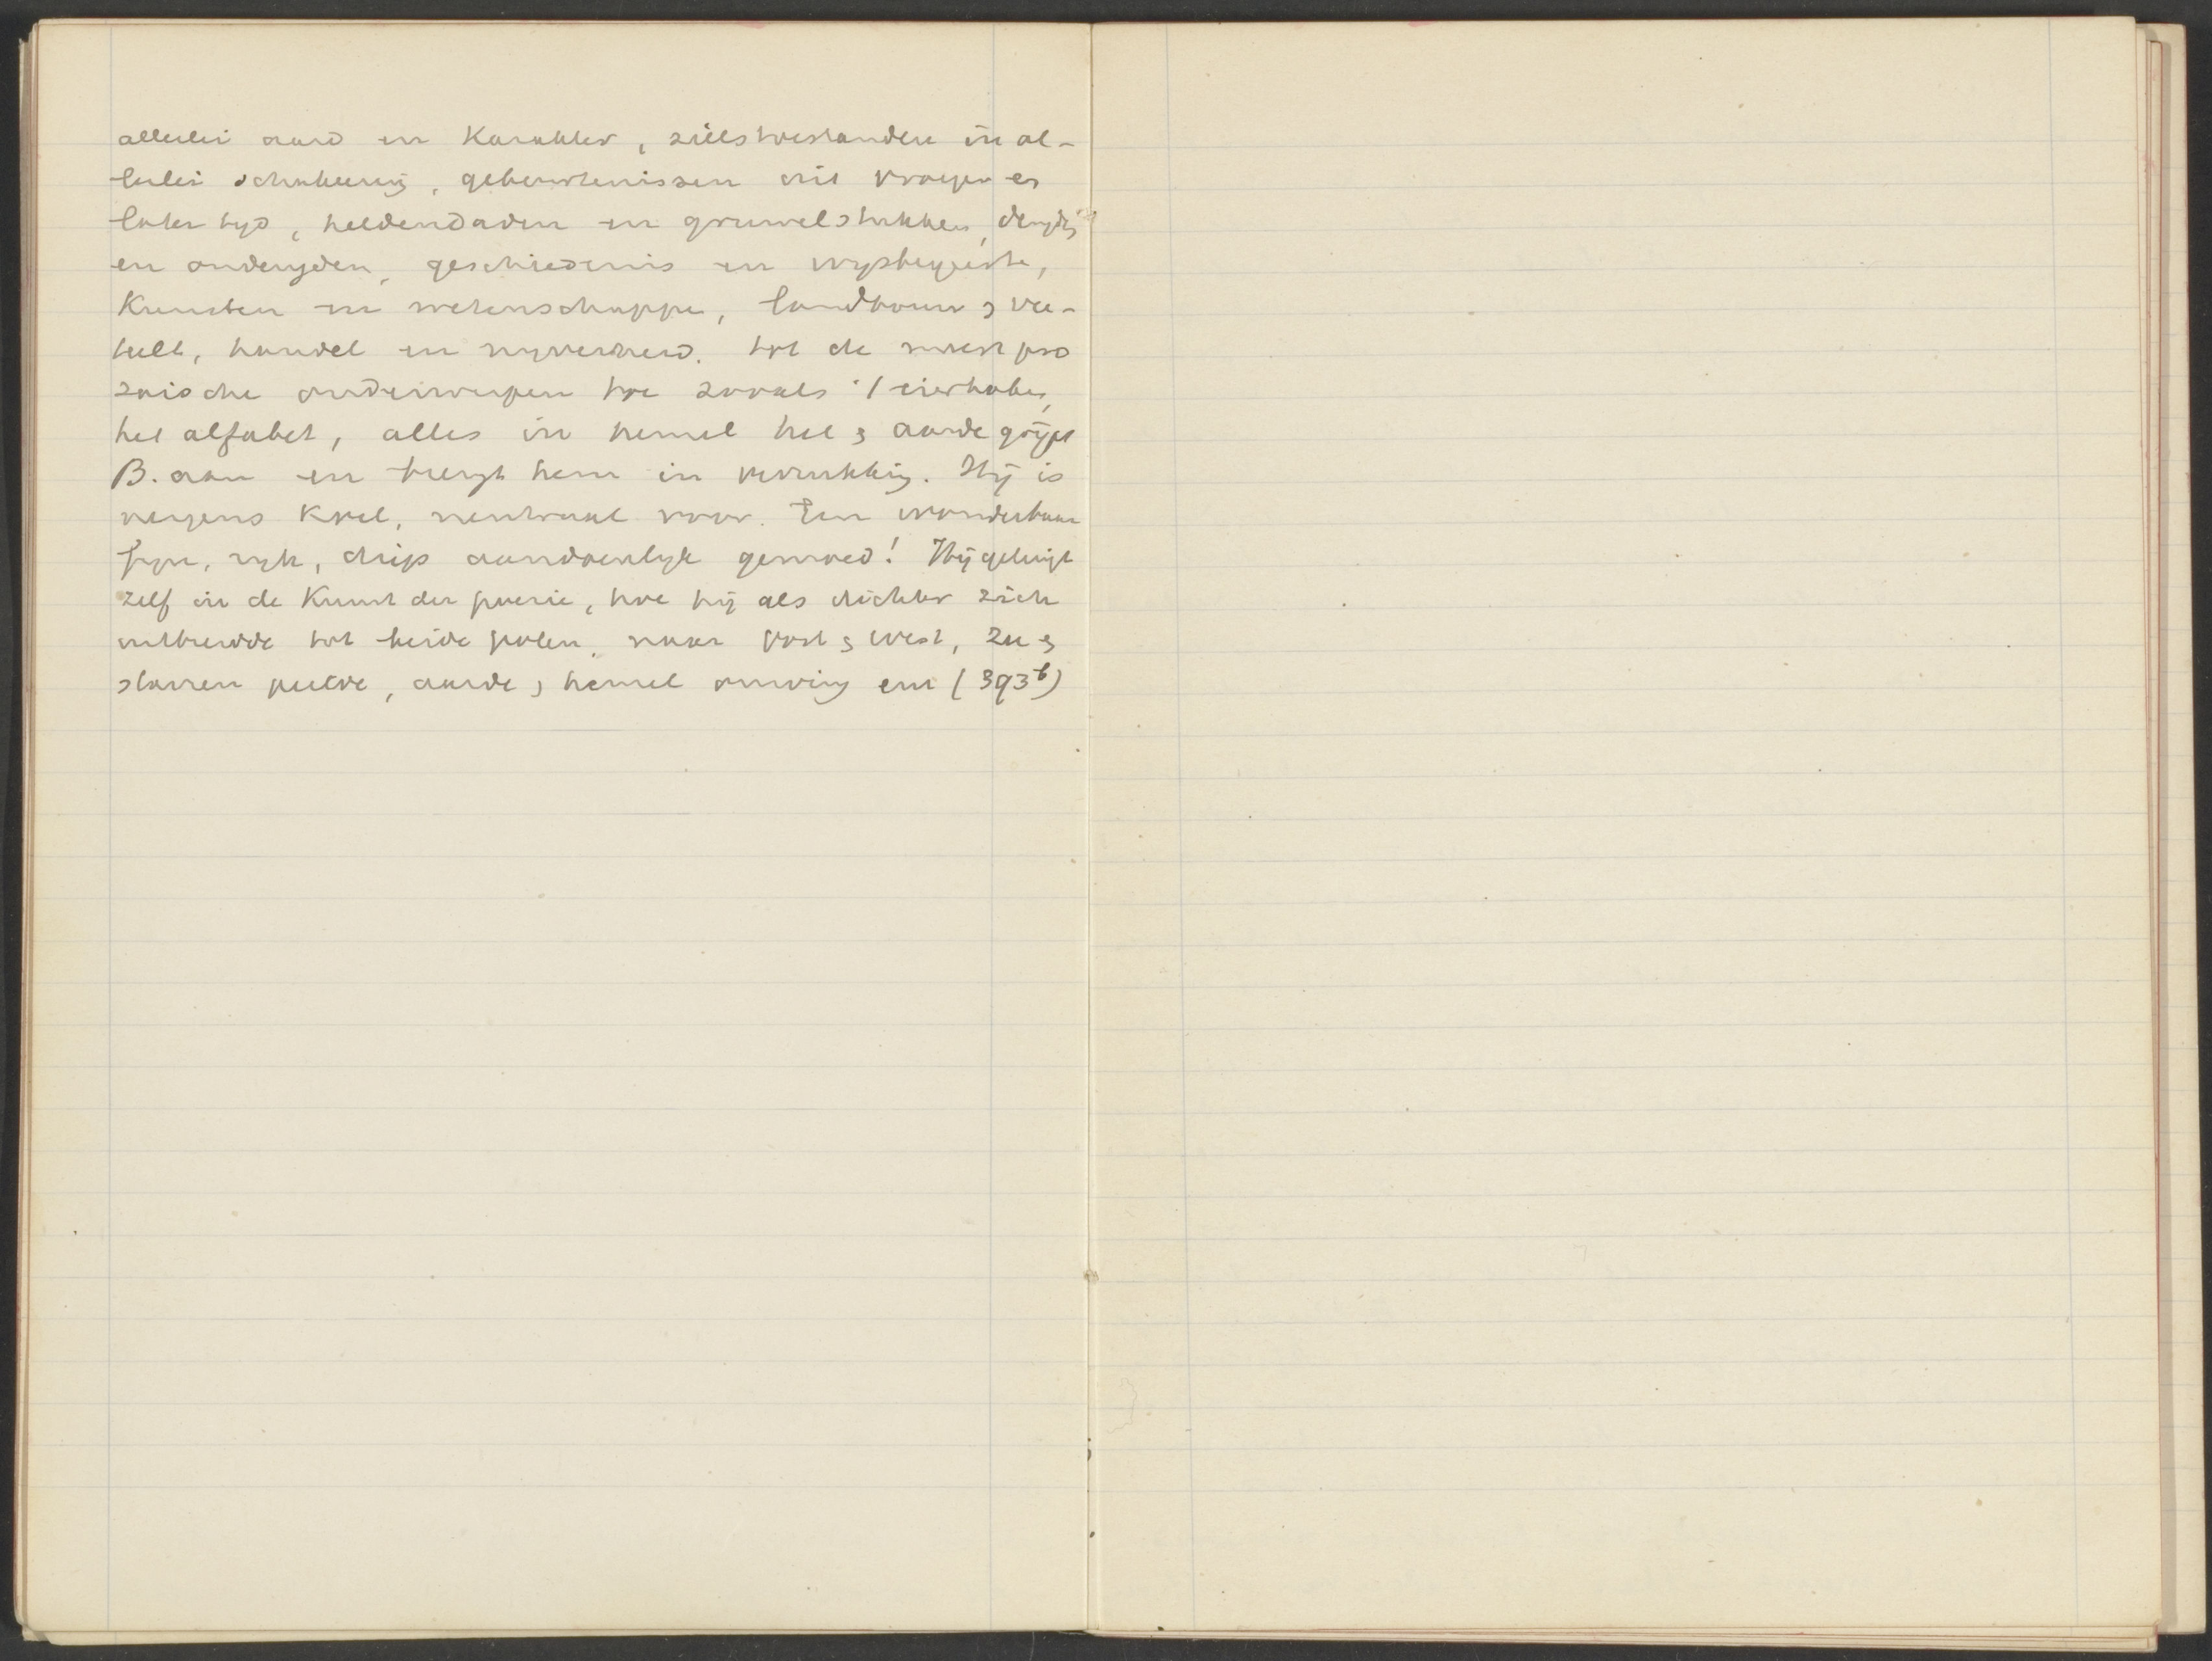 allerlei aard en karakter, zielstoestanden in al-
lerlei schakeering, gebeurtenissen uit vroeger en
later tyd, heldendaden en gruwelstukken, deugden
en ondeugden, geschiedenis en wysbegeerte,
Kunsten en wetenschappen, landbouw & vee-
teelt, handel en nyverheid. tot de meest pro
zaische onderwerpen toe zooals 't eierkoken,
het alfabet, alles in hemel hel & aarde grijpt
B. aan en brengt hem in verrukking. Hij is
nergens koel, neutraal voor. Een wonderbaar
fyn, ryk, diep aandoenlyk gemoed! Hij getuigt
zelf in de Kunst der poezie, hoe hij als dichter zich
uitbreidde tot beide polen, naar Oost & West, zee &
starren peilde, aarde & hemel omving enz (393b)